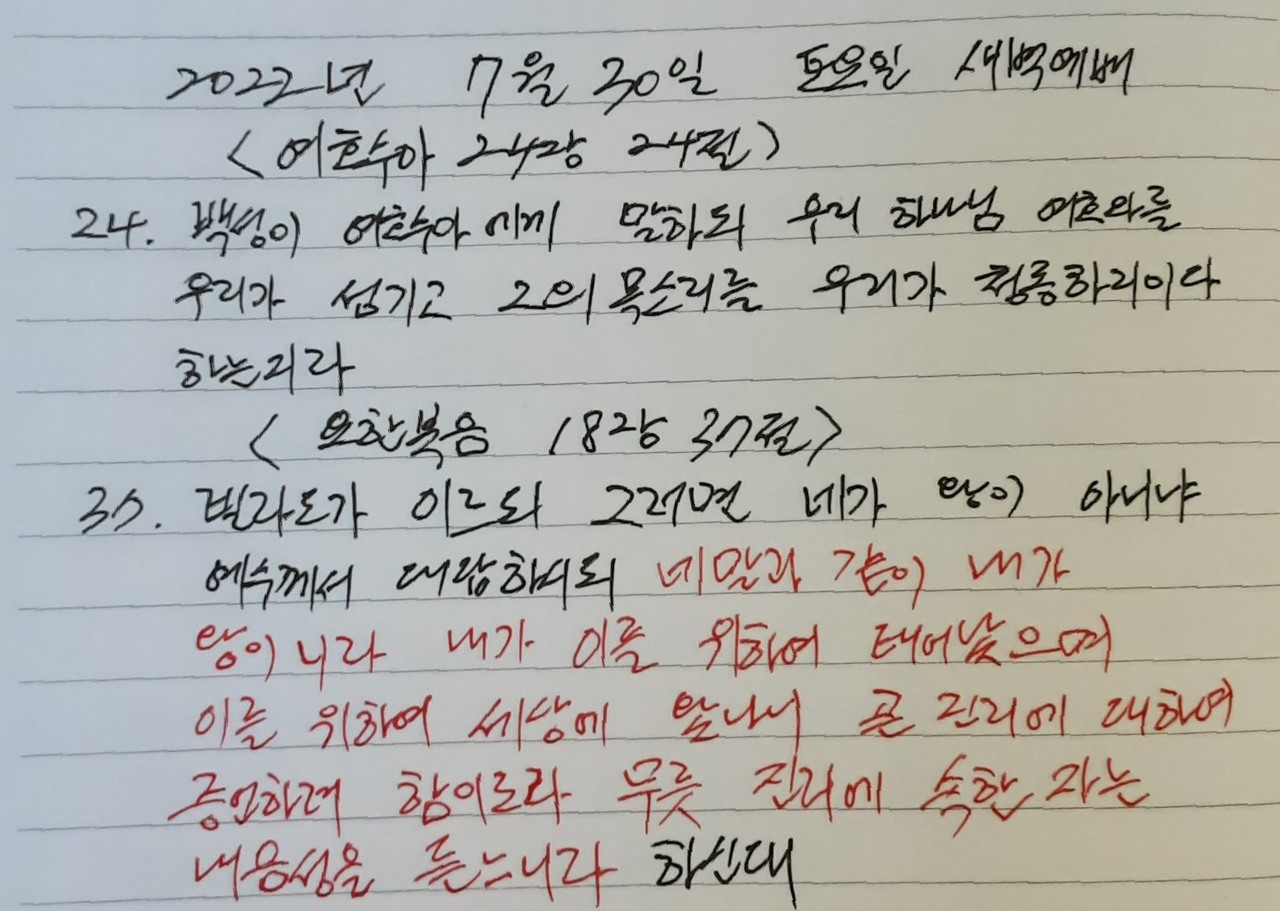 2022년 7월 30일 토요일 새벽예배
<여호수아 24장 24절>
24. 백성이 여호수아에게 말하되 우리 하나님 여호와를
우리가 섬기고 그의 목소리를 우리가 청종하리이다
하는지라
<요한복음 18장 37절>
37. 빌라도가 이르되 그러면 네가 왕이 아니냐
예수께서 대답하시되 네 말과 같이 내가
왕이니라 내가 이를 위하여 태어났으며
이를 위하여 세상에 왔나니 곧 진리에 대하여
증언하려 함이로라 무릇 진리에 속한 자는
내 음성을 듣느니라 하신대